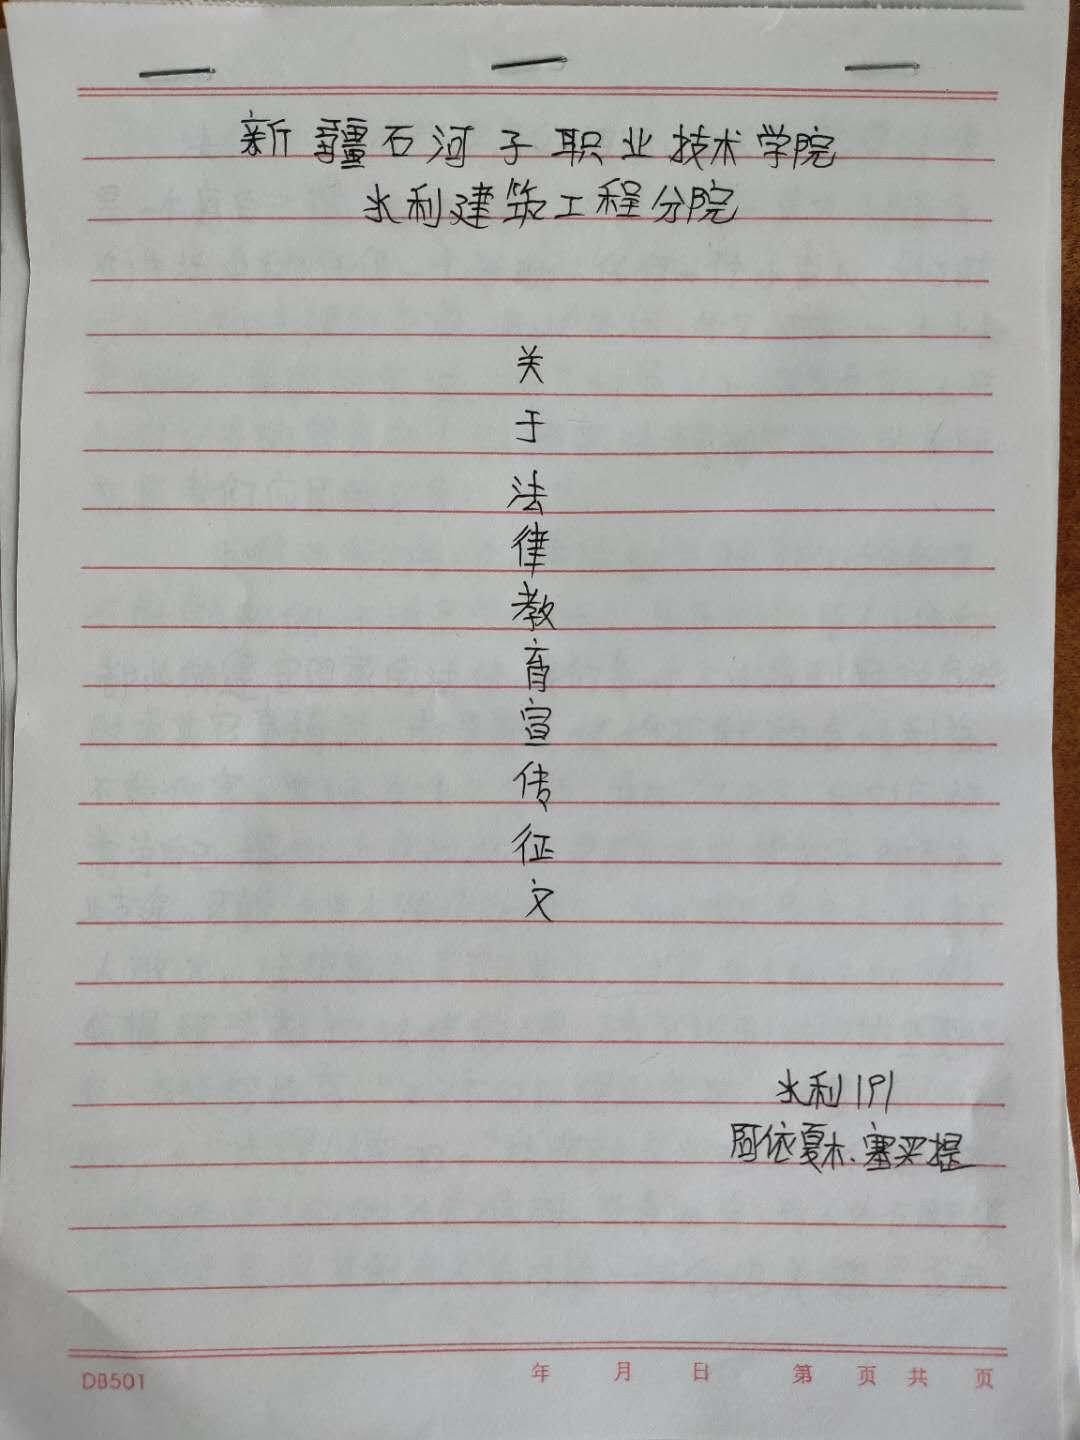 新疆石河子职业技术学院
水利建筑工程分院
关于法律教育宣传征文
水利191
阿依夏木·塞买提
DB501 年 月 日 第 页 共 页